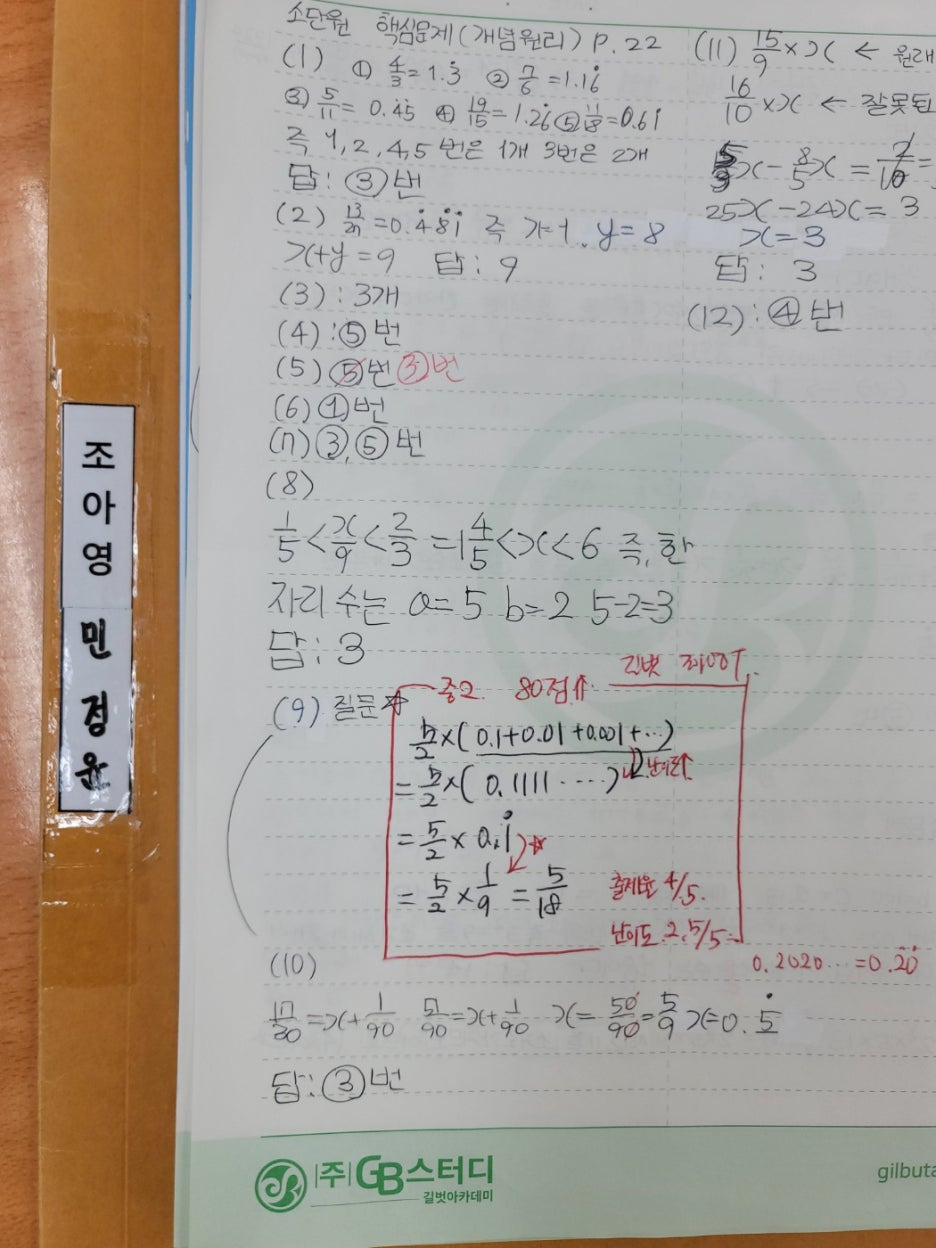 소단원 핵심문제(개념원리) P.22
(1) ① 4/3=1.3̇ ② 7/6=1.16̇
③ 5/11= 0.4̇5̇ ④ 19/15=1.26̇ ⑤ 11/18=0.61̇
즉 1, 2, 4, 5 번은 1개 3번은 2개
답: ③번
(2) 13/27=0.4̇8̇1̇ 즉 x=1, y=8
x+y=9 답: 9
(3) : 3개
(4) :⑤번
(5) ⑤번 ③번
(6) ①번
(7) ③, ⑤ 번
(8)
1/5<x/9<2/3 =1 4/5<x<6 즉, 한
자리 수는 a=5 b=2 5-2=3
답: 3
(9) 질문☆
중2 80점↑
길벗
5/2×( 0.1+0.01+0.001+…)
난이도↑
=5/2×( 0.1111 ····)
=5/2×0.1̇
☆
=5/2×1/9=5/18
출제율 4/5.
난이도 2.5/5
0.2020…=0.2̇0̇
(10)
17/30=x+1/90 51/90=x+1/90 x=50/90=5/9 x=0.5̇
답: ③번
(11) 15/9×x ← 원래
16/10×x ← 잘못된
5/3x-8/5x=2/10=
25x-24x=3
x=3
답: 3
(12) : ④번
조아영
민경윤
(주)GB스터디
길벗아카데미
gilbuta